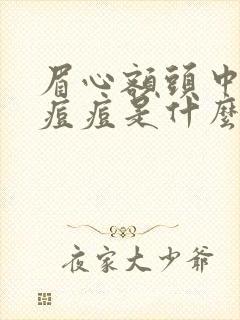 眉心額頭中
痘痘是什麼
夜家大少爺